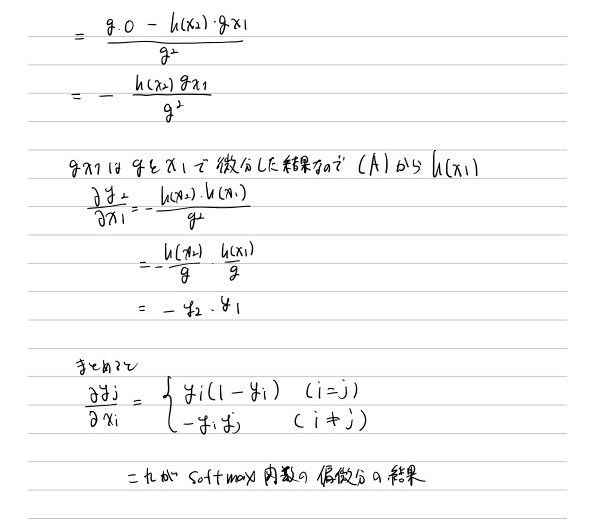 = \frac{g \cdot 0 - h(x_2) \cdot g_{x_1}}{g^2}
= - \frac{h(x_2) g_{x_1}}{g^2}
g_{x_1} は g を x_1 で 微分した結果なので (A) から h(x_1)
\frac{∂y_2}{∂x_1} = - \frac{h(x_2) \cdot h(x_1)}{g^2}
= - \frac{h(x_2)}{g} \cdot \frac{h(x_1)}{g}
= - y_2 \cdot y_1
まとめると
\frac{∂y_j}{∂x_i} = \begin{cases} y_i(1 - y_i) & (i = j) \\ -y_i y_j & (i ≠ j) \end{cases}
これが softmax 関数の 偏微分の結果